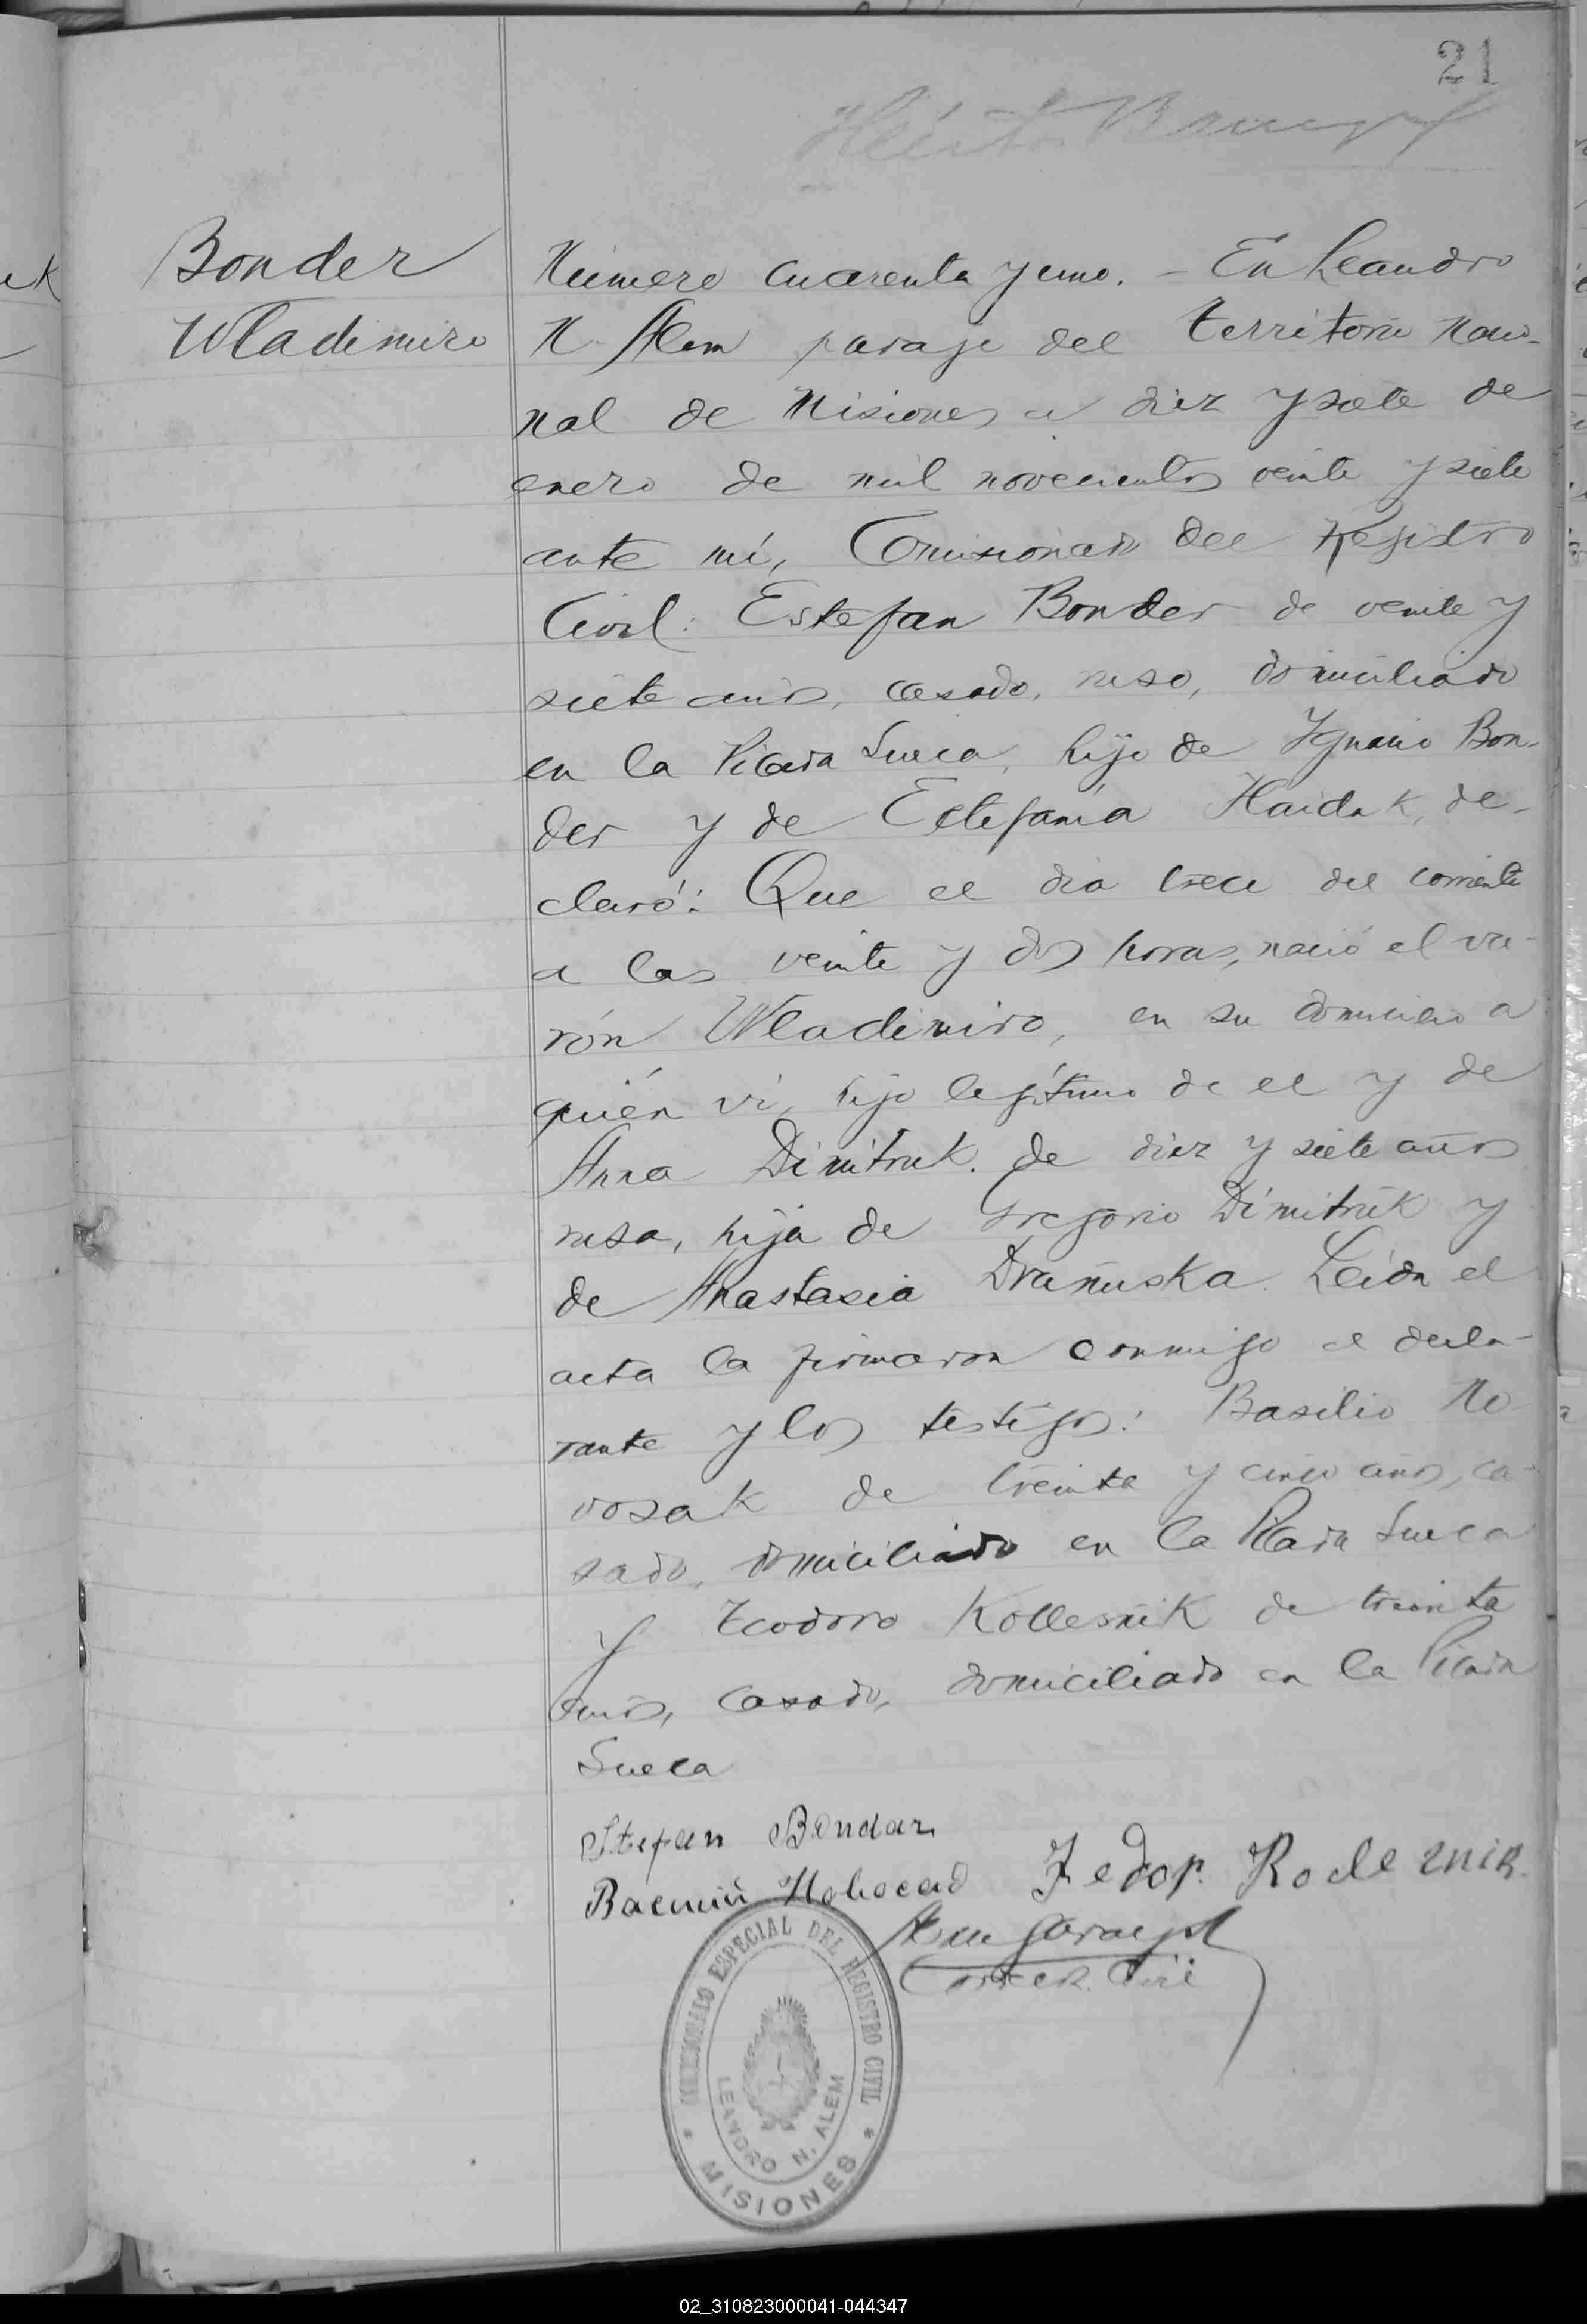 21
Bonder
Wladimiro
Número cuarenta y uno. - En Leandro
N. Alem paraje del territorio nacio-
nal de Misiones a diez y siete de
enero de mil novecientos veinte y siete
ante mí, Comisionado del Registro
Civil: Estefan Bonder de veinte y
siete años, casado, ruso, domiciliado
en la Picada Sueca, hijo de Ignacio Bon-
der y de Estefanía Haiduk, de-
claró: Que el día trece del corriente
a las veinte y dos horas, nació el va-
rón Wladimiro, en su domicilio a
quién ví, hijo legítimo de el y de
Anna Dimitruk. de diez y siete años
rusa, hija de Gregorio Dimitruk y
de Anastasia Drañuska. Leída el
acta la firmaron conmigo el decla-
rante y los testigos: Basilio No-
vosak de treinta y cinco años, ca-
sado, domiciliado en la Picada Sueca
y Teodoro Kollesnik de treinta
años, casado, domiciliado en la Picada
Sueca
Stefan Bondar
COMISIONADO ESPECIAL DEL REGISTRO CIVIL
LEANDRO N. ALEM
* MISIONES *
02_310823000041-044347